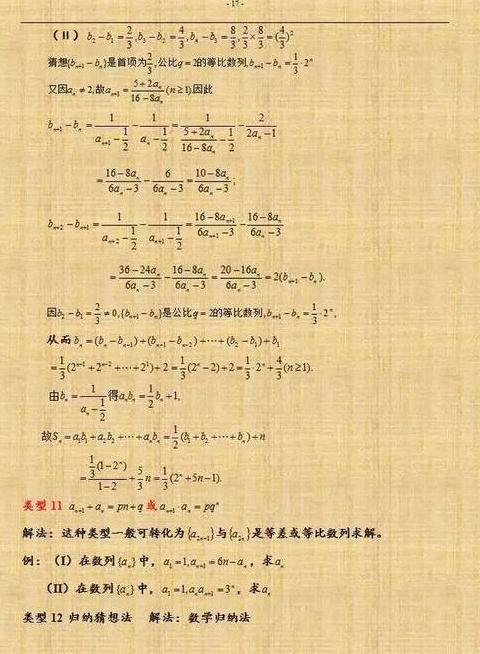 - 17 -
(Ⅱ) b₂-b₁=2/3, b₃-b₂=4/3, b₄-b₃=8/3, 2/3×8/3=(4/3)²
猜想{bₙ₊₁-bₙ}是首项为2/3,公比q=2的等比数列,bₙ₊₁-bₙ=1/3·2ⁿ
又因aₙ≠2,故aₙ₊₁=(5+2aₙ)/(16-8aₙ)(n≥1).因此
bₙ₊₁-bₙ=1/(aₙ₊₁-1/2)-1/(aₙ-1/2)=1/((5+2aₙ)/(16-8aₙ)-1/2)-2/(2aₙ-1)
=(16-8aₙ)/(6aₙ-3)-6/(6aₙ-3)=(10-8aₙ)/(6aₙ-3);
bₙ₊₂-bₙ₊₁=1/(aₙ₊₂-1/2)-1/(aₙ₊₁-1/2)=(16-8aₙ₊₁)/(6aₙ₊₁-3)-(16-8aₙ)/(6aₙ-3)
=(36-24aₙ)/(6aₙ-3)-(16-8aₙ)/(6aₙ-3)=(20-16aₙ)/(6aₙ-3)=2(bₙ₊₁-bₙ).
因b₂-b₁=2/3≠0,{bₙ₊₁-bₙ}是公比q=2的等比数列,bₙ₊₁-bₙ=1/3·2ⁿ,
从而bₙ=(bₙ-bₙ₋₁)+(bₙ₋₁-bₙ₋₂)+⋯+(b₂-b₁)+b₁
=1/3(2ⁿ⁻¹+2ⁿ⁻²+⋯+2¹)+2=1/3(2ⁿ-2)+2=1/3·2ⁿ+4/3(n≥1).
由bₙ=1/(aₙ-1/2)得aₙbₙ=1/2bₙ+1,
故Sₙ=a₁b₁+a₂b₂+⋯+aₙbₙ=1/2(b₁+b₂+⋯+bₙ)+n
=(1/3(1-2ⁿ))/(1-2)+5/3n=1/3(2ⁿ+5n-1).
类型11 aₙ₊₁+aₙ=pn+q或aₙ₊₁·aₙ=pqⁿ
解法：这种类型一般可转化为{a₂ₙ₋₁}与{a₂ₙ}是等差或等比数列求解。
例：（Ⅰ）在数列{aₙ}中，a₁=1,aₙ₊₁=6n-aₙ，求aₙ
（Ⅱ）在数列{aₙ}中，a₁=1,aₙaₙ₊₁=3ⁿ，求aₙ
类型12 归纳猜想法 解法：数学归纳法